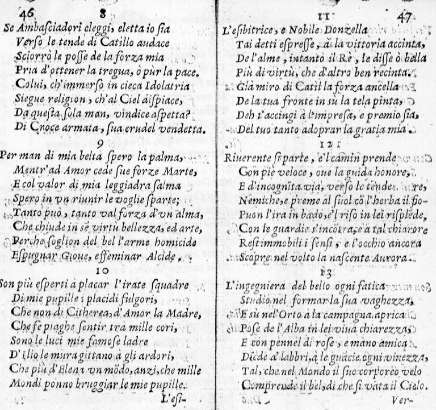 46 8
Se Ambasciadori eleggi, eletta io sia
Verso le tende di Catillo audace
Sciorrò le posse de la forza mia
Pria d'ottener la tregua, ò pùr la pace.
Colui, ch'immerso in cieca Idolatria
Siegue religion, ch'al Ciel dispiace,
Da questa sola man, vindice aspetta?
Di Croce armata, sua crudel vendetta.
9
Per man di mia beltà spero la palma,
Mentr'ad Amor cede sue forze Marte,
E col valor di mia leggiadra salma
Spero in vn riunir le voglie sparte;
Tanto può, tanto val forza d'vn alma,
Che chiude in sè virtù bellezza, ed arte,
Perche soglion del bel l'arme homicide
Espugnar Gioue, effeminar Alcide.
10
Son più esperti à placar l'irate squadre
Di mie pupille i placidi fulgori,
Che non di Citherea, d'Amor la Madre,
Che fè piaghe sentir trà mille cori,
Sono le luci mie famose ladre
D'Ilio le mura gittano à gli ardori,
Che più d'Elena vn mõdo, anzi, che mille
Mondi ponno bruggiar le mie pupille.
L'esi-
11 47
L'esibitrice, e Nobile Donzella
Tai detti espresse, à la vittoria accinta,
De l'alme, intanto il Rè, le disse ò bella
Più di virtù, che d'altro ben recinta.
Già miro di Catil la forza ancella
De la tua fronte in sù la tela pinta,
Deh t'accingi à l'impresa, e premio sia,
Del tuo tanto adoprar la gratia mia.
12
Riuerente si parte, e'l camin prende
Con piè veloce, oue la guida honore,
E d'incognita via, verso le tende
Nemiche, e preme al suol cò l'herba il fiore
Puon l'ira in bado, e'l riso in lei risplẽde,
Con le guardie s'incõtra, e à tal chiarore
Resi immobili i sensi, e l'occhio ancora
Scopre nel volto la nascente Aurora.
13
L'ingegniera del bello ogni fatica
Studiò nel formar la sua vaghezza,
E sù nel'Orto à la campagna aprica
Pose de l'Alba in lei viua chiarezza,
E con pennel di rose, e mano amica
Diede à labbri, à le guācie ogni viuezza,
Tal, che nel Mondo il suo corporeo velo
Comprende il bel, di che si vāta il Cielo.
Ver-